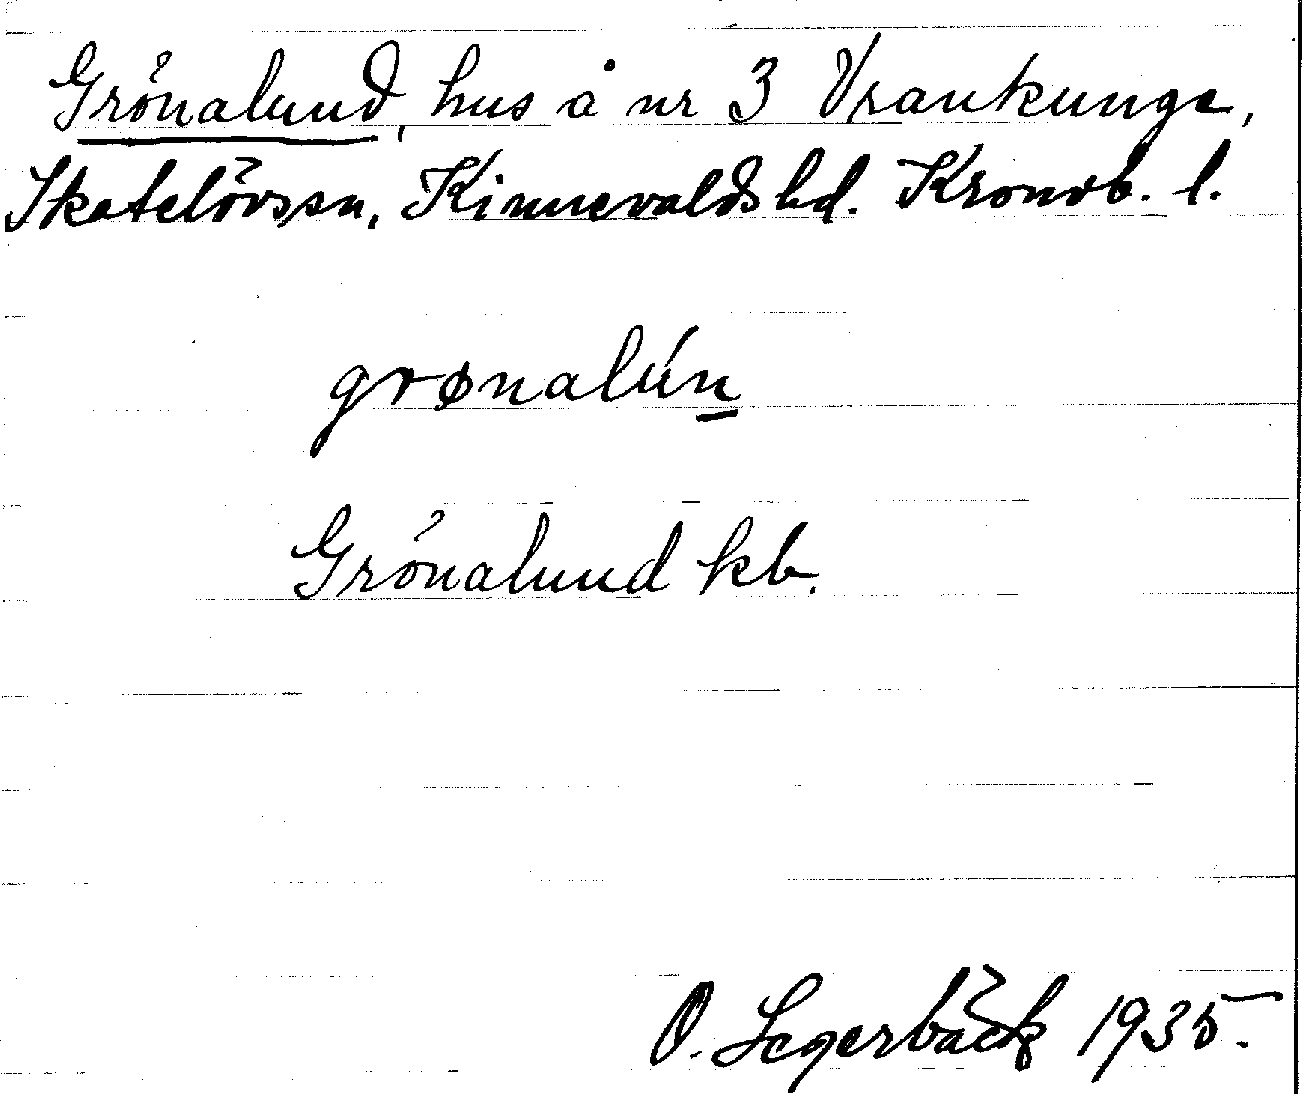 Grönalund, hus å nr 3 Vrankunge,
Skatelövssn, Kinnevaldshd. Kronob. l.
grønalún
Grönalund kb.
O. Segerbäck 1935.